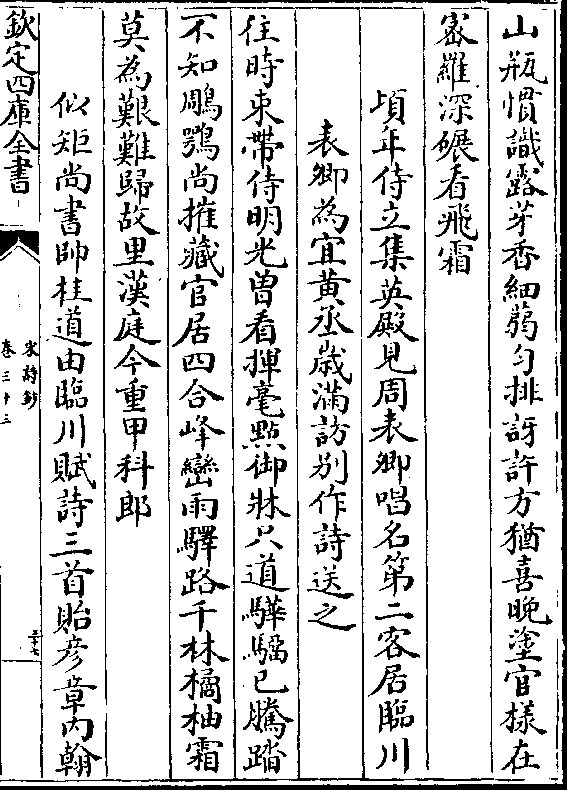 山瓶慣識露芽香細蒻勻排訝許方猶喜晩塗官様在
宻羅深碾看飛霜
頃年侍立集英殿見周表卿唱名第二客居臨川
表卿為宜黄丞歳滿訪别作詩送之
往時束帶侍明光曽看揮毫㸃御牀只道驊騮已騰踏
不知鵰鶚尚摧藏官居四合峰巒雨驛路千林橘柚霜
莫為艱難歸故里漢庭今重甲科郎
似矩尚書帥桂道由臨川賦詩三首貽彦章内翰
欽定四庫全書
宋詩鈔
卷三十三